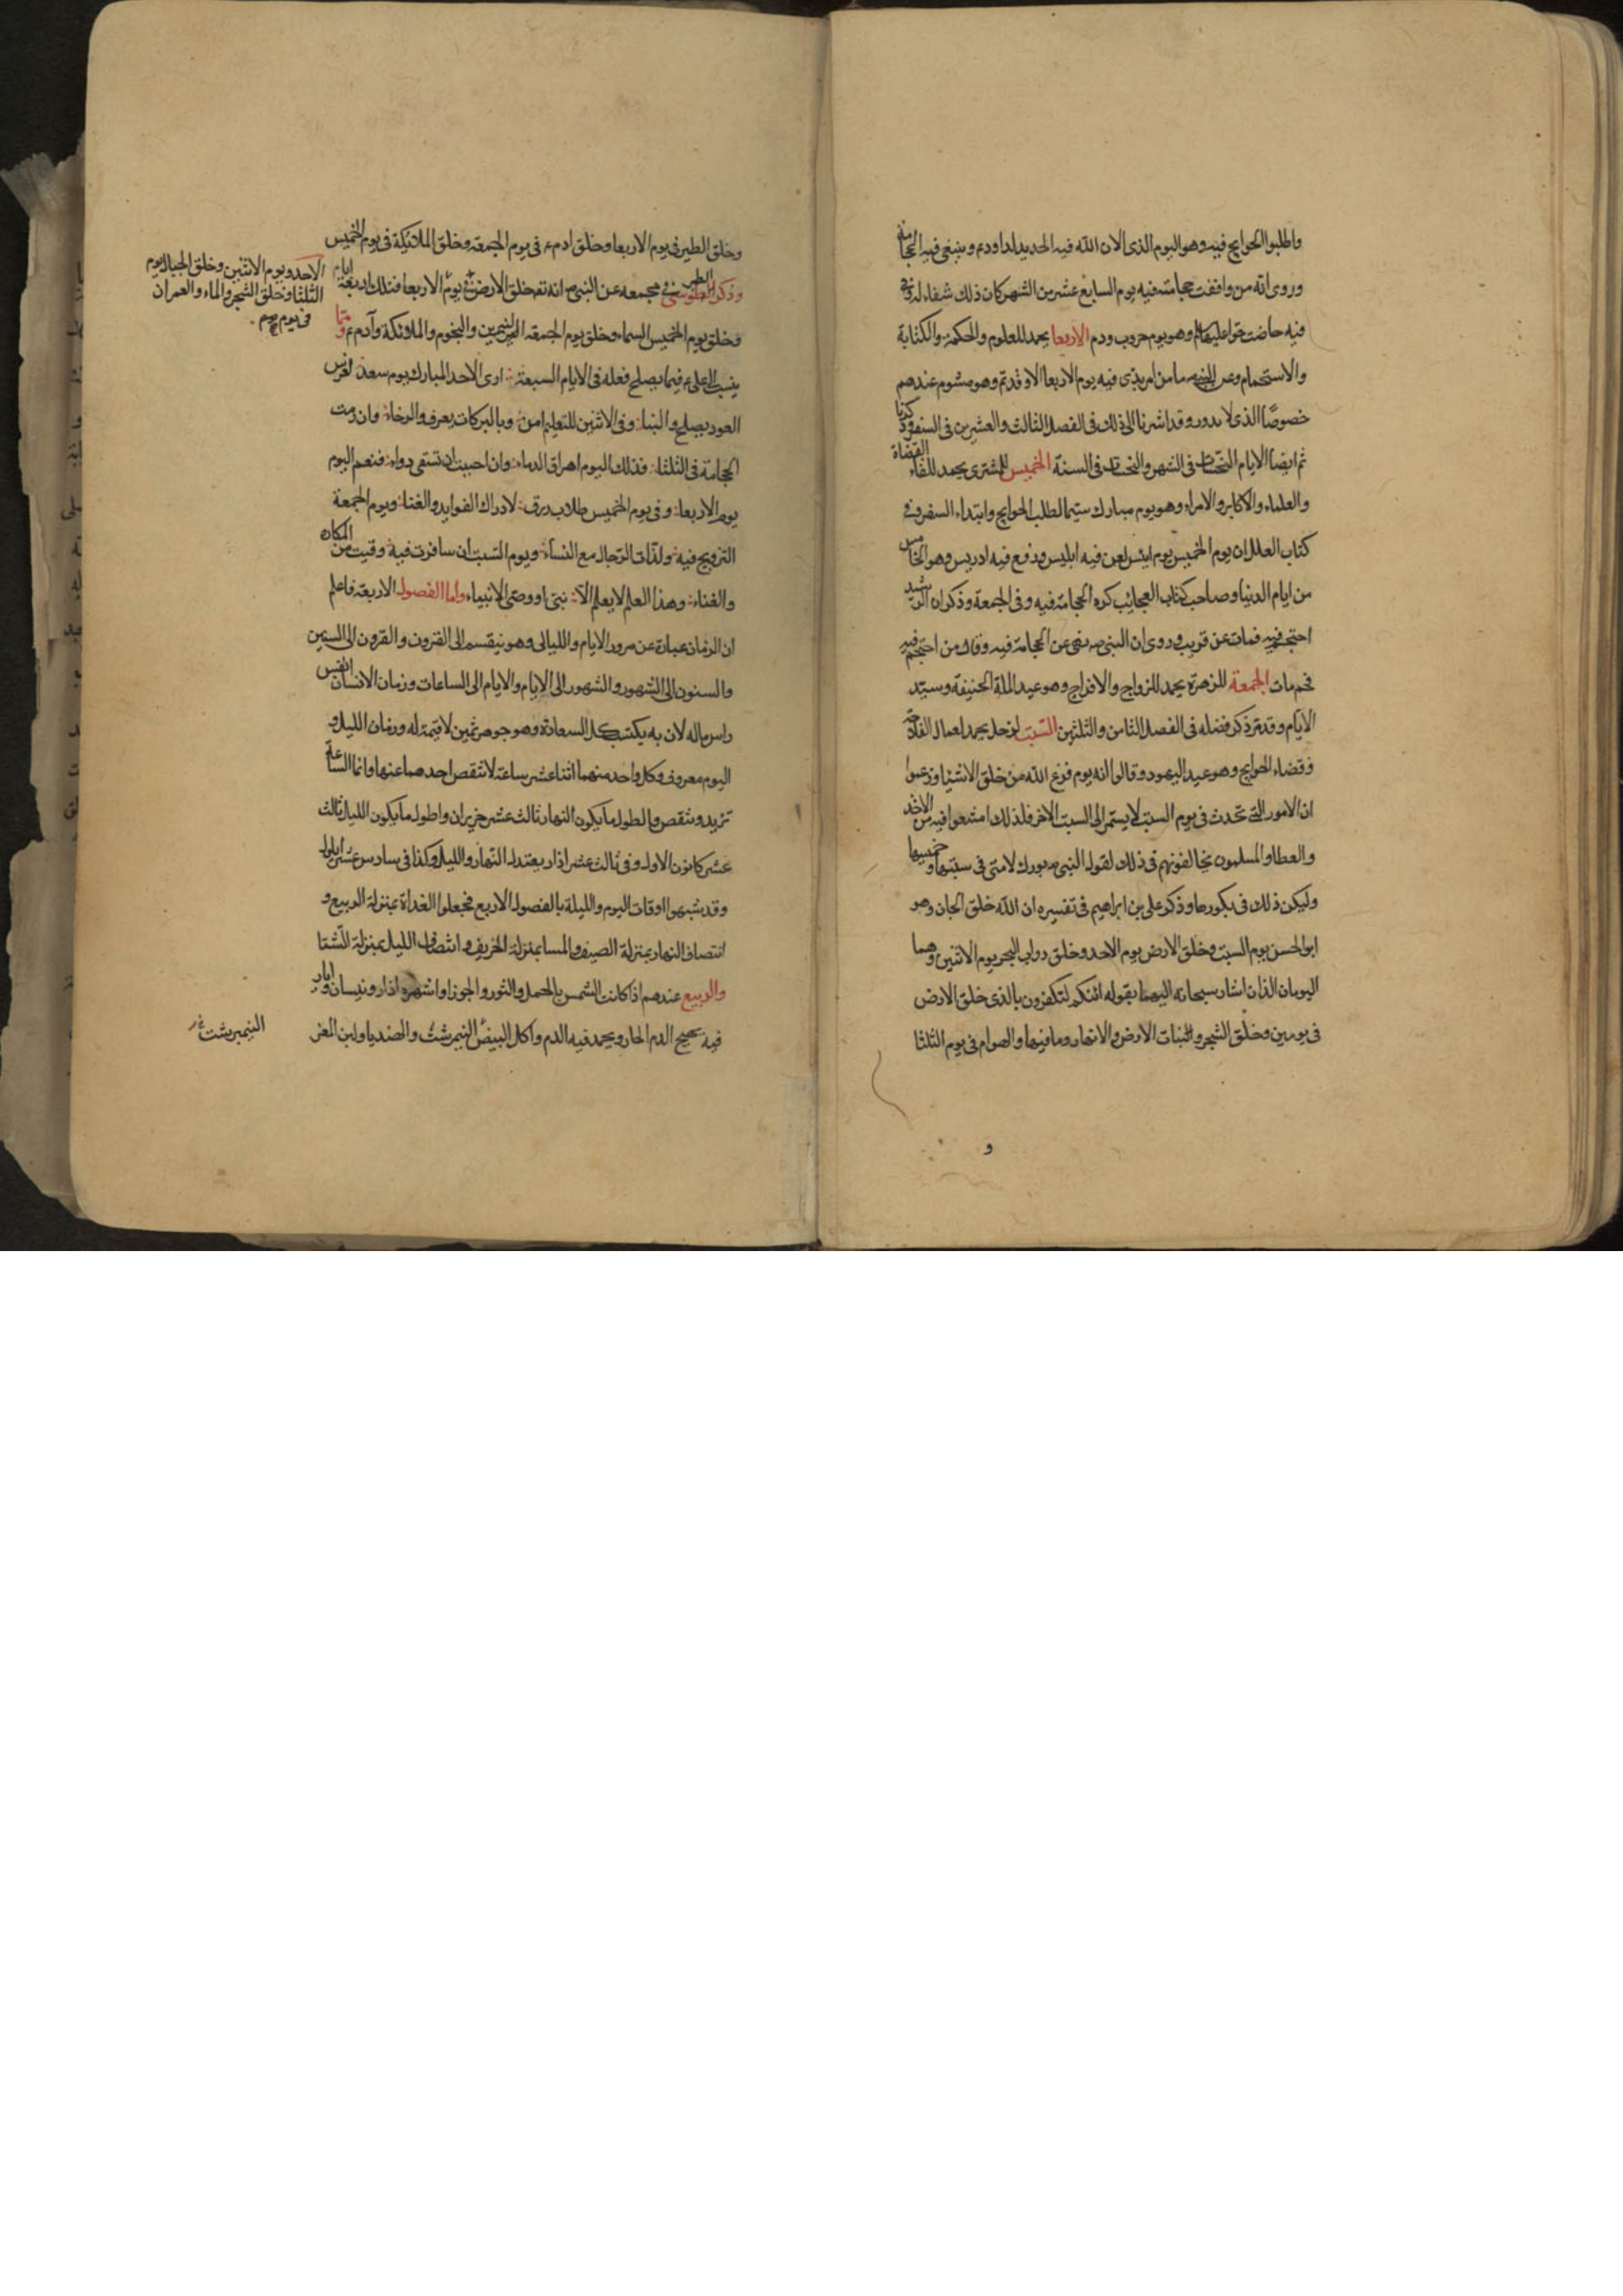 واطلبوا الحوايج فيه وهو اليوم الذى الان الله فيه الحديد لداود ع وينبغى فيه الحجامة
وروى انه من وافقت حجامته فيه يوم السابع عشر من الشهر كان ذلك شفاء له وفى
فيه حاضت حوا عليها وهو يوم حروب ودم الاربعا يحمد للعلوم والحكمة والكتابة
والاستحمام وعن النبى ص ما من امر بدى فيه يوم الاربعا الا وقد تم وهو مشوم عندهم
خصوصًا الذى لا يدور وقد اشرنا الى ذلك فى الفصل الثالث والعشرين فى السفر وذكرنا
ثم ايضا الايام النحسات فى الشهر والنحسات فى السنة الخميس للمشترى يحمد للقاء القضاة
والعلماء والاكابر والامراء وهو يوم مبارك سيما لطلب الحوايج وابتداء السفر وفى
كتاب العلل ان يوم الخميس يوم انيس لعن فيه ابليس ورفع فيه ادريس وهو الخامس
من ايام الدنيا وصاحب كتاب العجايب كره الحجامة فيه وفى الجمعة وذكر ان الرشيد
احتجم فيه فمات عن قريب وروى ان النبى ص نهى عن الحجامة فيه وقال من احتجم فيه
فحم مات الجمعة للزهرة يحمد للزواج والافراح وهو عيد الملة الحنيفة وسيد
الايام وقد مر ذكر فضله فى الفصل الثامن والثلثين السبت لزحل يحمد لعمال الفلاحة
وقضاء الحوايج وهو عيد اليهود وقالوا انه يوم فرغ الله من خلق الاشيا وزعموا
ان الامور التى تحدث فى يوم السبت لا يستمر الى السبت الاخر فلذلك امتنعوا فيه من الاخذ
والعطا والمسلمون يخالفونهم فى ذلك لقول النبى ص بورك لامتى فى سبتها وخميسها
وليكن ذلك فى بكورها وذكر على بن ابراهيم فى تفسيره ان الله خلق الجان وهو
ابو الحسن يوم السبت وخلق الارض يوم الاحد وخلق دواب البحر يوم الاثنين وهما
اليومان الذان اشار سبحانه اليهما بقوله ائنكم لتكفرون بالذى خلق الارض
فى يومين وخلق الشجر والنبات الارض والانهار وما فيها والهوام فى يوم الثلثا
و
وخلق الطير فى يوم الاربعا وخلق ادم ع فى يوم الجمعة وخلق الملائيكة فى يوم الخميس
وذكر الطبرسى فى مجمعه عن النبى ص انه تعه خلق الارض فى يوم الاربعا فتلك اربعة ايام
وخلق يوم الخميس السماء وخلق يوم الجمعة الشمس والنجوم والملائكة وآدم ع ومما
ينسب الى على ع فيما يصلح فعله فى الايام السبعة ارى الاحد المبارك يوم سعد لغرس
العود يصلح والبنا وفى الاثنين للتعليم امن وبالبركات يعرف والرخاء وان رمت
الحجامة فى الثلثا فذلك اليوم اهراق الدماء وان احببت ان تسقى دواء فنعم اليوم
يوم الاربعا وفى يوم الخميس طلاب رزق لادراك الفوايد والغنا ويوم الجمعة
التزويج فيه ولذات الرجال مع النساء ويوم السبت ان سافرت فيه وقيت من المكاره
والغناء وهذا العلم لا يعلم الا نبى او وصى الانبياء واما الفصول الاربعة فاعلم
ان الزمان عبارة عن مرور الايام والليالى وهو ينقسم الى القرون والقرون الى السنين
والسنون الى الشهور والشهور الى الايام والايام الى الساعات وزمان الانسان انفس
راس ماله لان به يكتسب كل السعادة وهو جوهر ثمين لا قيمة له وزمان الليل و
اليوم معروف وكل واحد منهما اثنا عشر ساعة لا تنقص احدهما عنها وانما الساعة
تزيد وتنقص واطول ما يكون النهار ثالث عشر حزيران واطول ما يكون الليل ثالث
عشر كانون الاول وفى ثالث عشر اذار يعتدل النهار والليل وكذا فى سادس عشر ايلول
وقد شبهوا اوقات اليوم والليلة بالفصول الاربع فجعلوا الغداة بمنزلة الربيع و
انتصاف النهار بمنزلة الصيف والمسا بمنزلة الخريف وانتصاف الليل بمنزلة الشتا
والربيع عندهم اذا كانت الشمس بالحمل والثور والجوزا واشهره اذار ونيسان وايار
فيه يهيج الدم الحار ويحمد فيه الدم واكل البيض النيمرشت والهنديا ولبن المعز
الاحد ويوم الاثنين وخلق الجبال يوم
الثلثا وخلق الشجر والماء والعمران
فى يوم
النيمبرشت